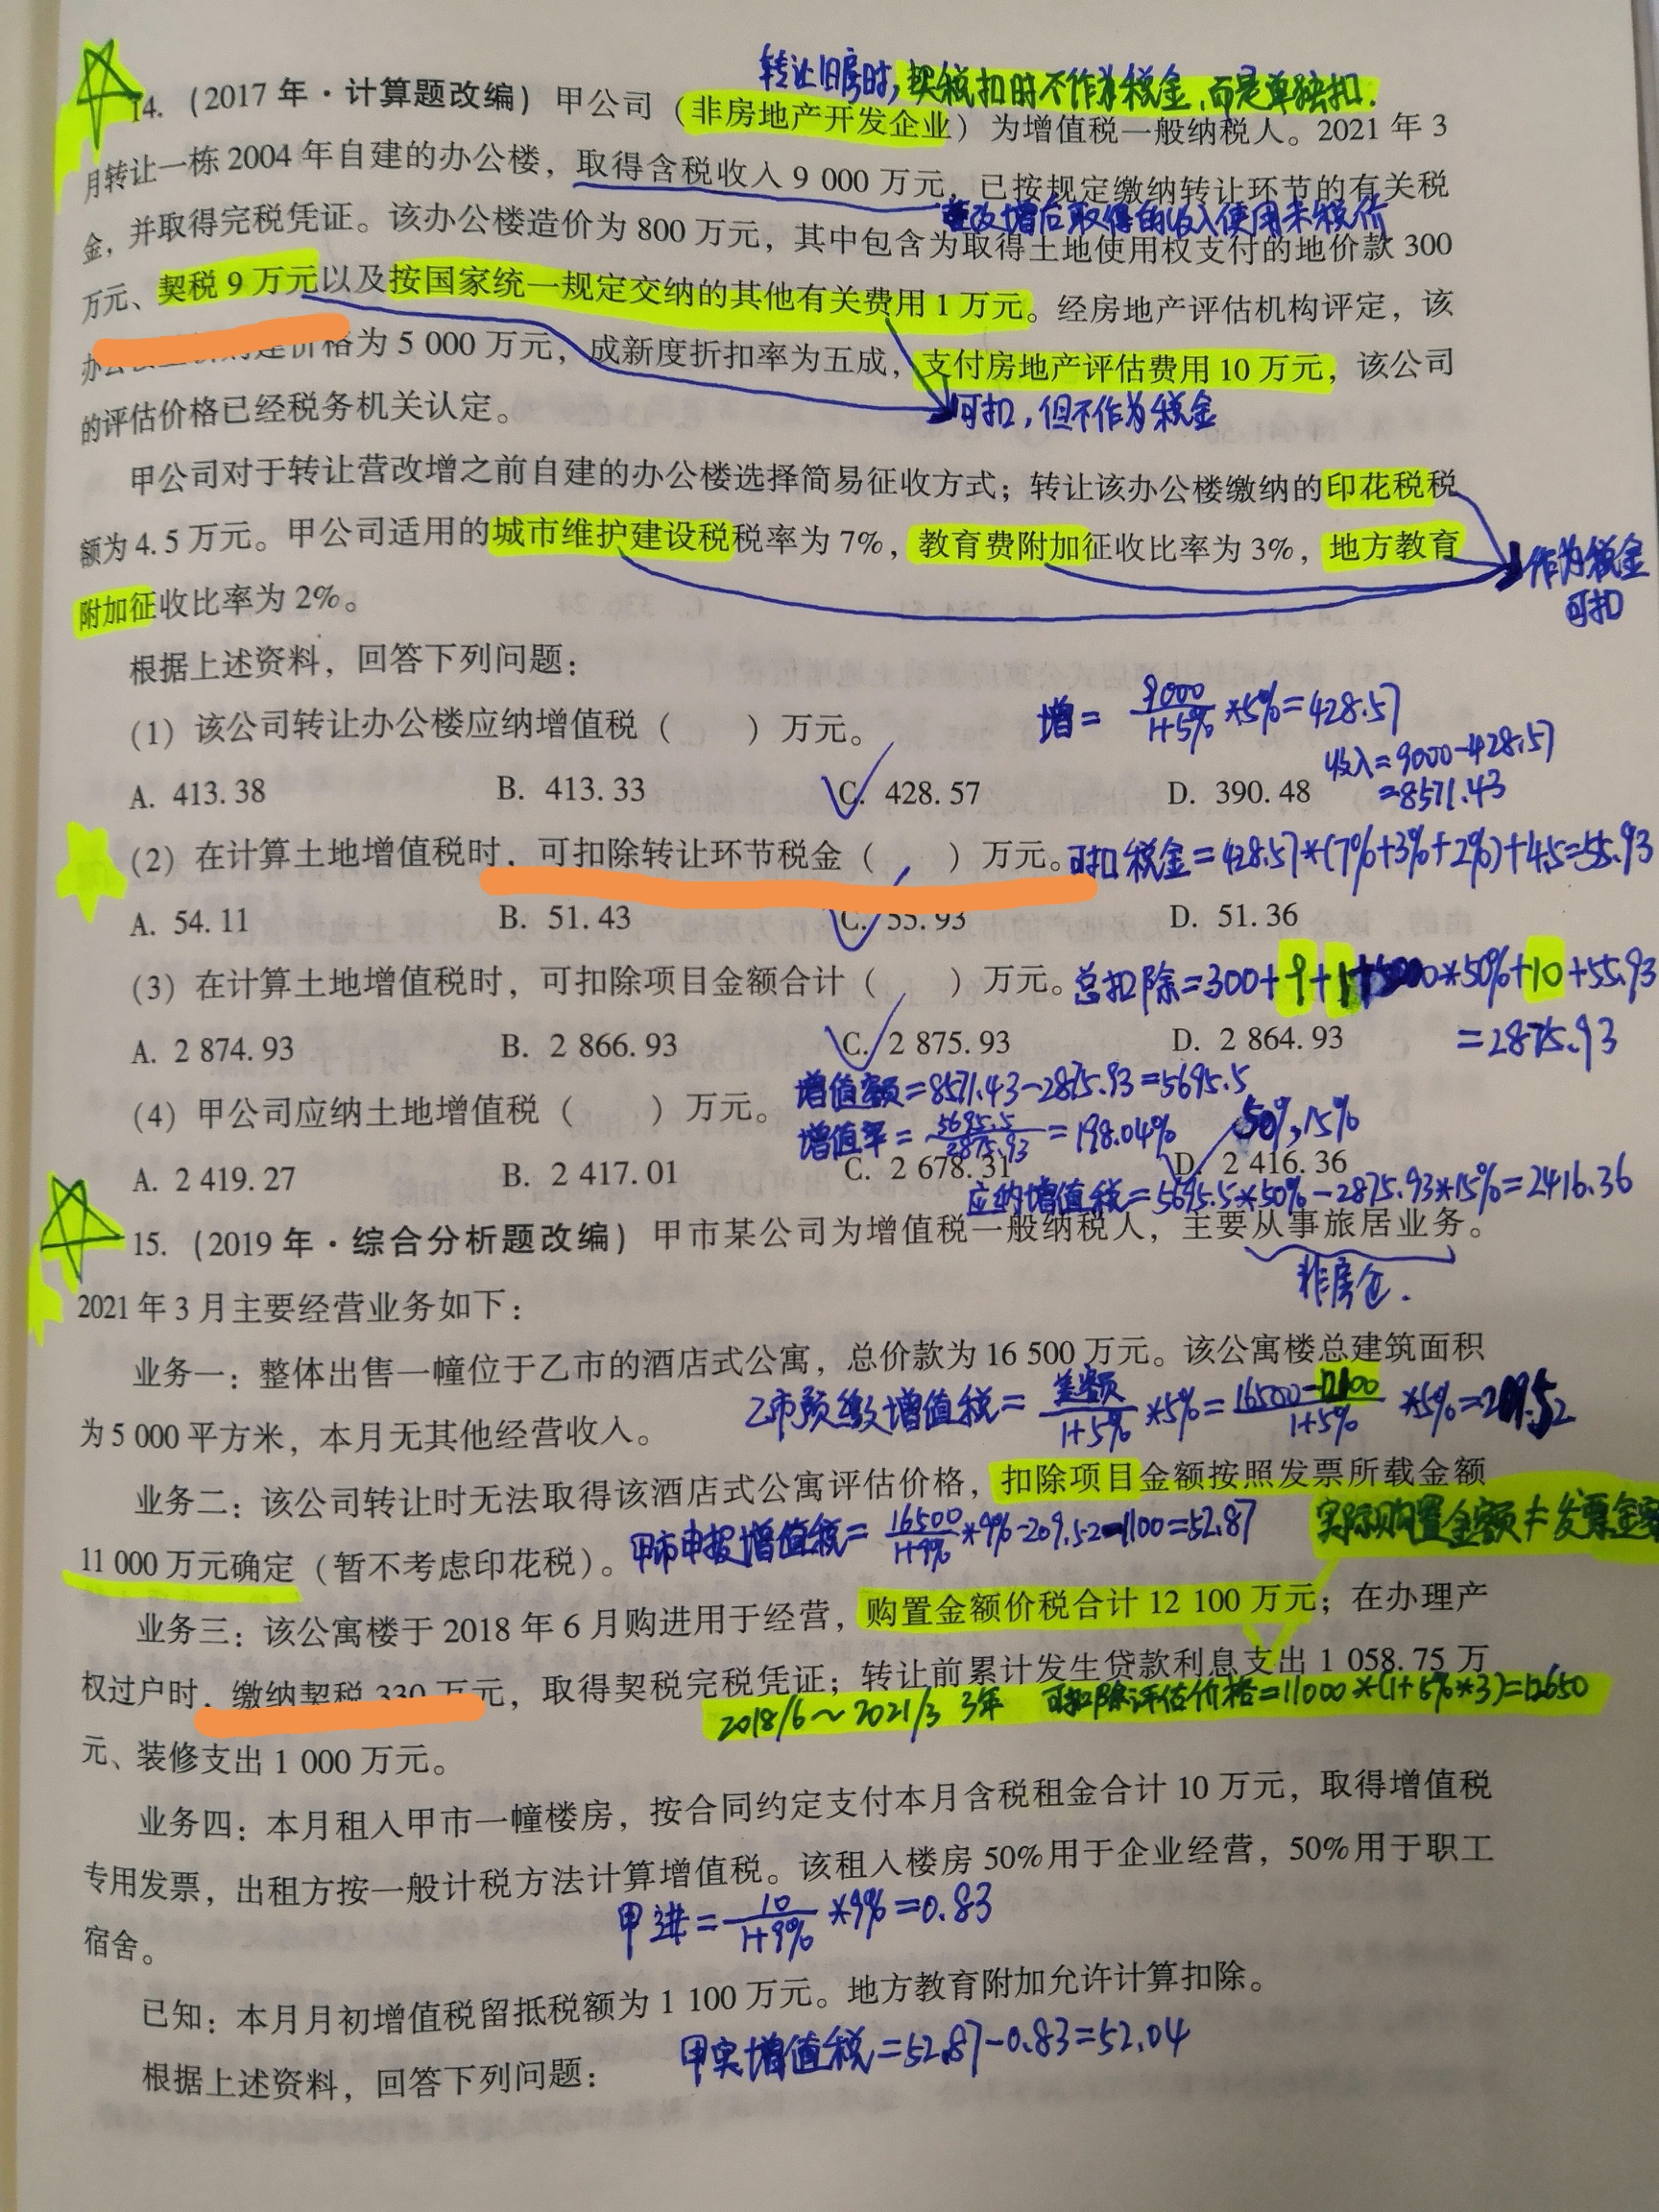 转让旧房时，契税扣时不作为税金，而是单独扣.
14.（2017 年·计算题改编）甲公司（非房地产开发企业）为增值税一般纳税人。2021 年 3
月转让一栋 2004 年自建的办公楼，取得含税收入 9 000 万元，已按规定缴纳转让环节的有关税
改增后取得的收入使用未税价
金，并取得完税凭证。该办公楼造价为 800 万元，其中包含为取得土地使用权支付的地价款 300
万元、契税 9 万元以及按国家统一规定交纳的其他有关费用 1 万元。经房地产评估机构评定，该
建价格为 5 000 万元，成新度折扣率为五成，支付房地产评估费用 10 万元，该公司
的评估价格已经税务机关认定。
可扣，但不作为税金
甲公司对于转让营改增之前自建的办公楼选择简易征收方式；转让该办公楼缴纳的印花税税
额为 4.5 万元。甲公司适用的城市维护建设税税率为 7%，教育费附加征收比率为 3%，地方教育
作为税金
可扣
附加征收比率为 2%。
根据上述资料，回答下列问题：
（1）该公司转让办公楼应纳增值税（　　）万元。
增= 9000/1+5% *5%=428.57
收入=9000-428.57
=8571.43
A. 413.38　B. 413.33　C. 428.57　D. 390.48
（2）在计算土地增值税时，可扣除转让环节税金（　　）万元。
可扣税金=428.57*(7%+3%+2%)+4.5=55.93
A. 54.11　B. 51.43　C. 55.93　D. 51.36
（3）在计算土地增值税时，可扣除项目金额合计（　　）万元。
总扣除=300+9+1+5000*50%+10+55.93
=2875.93
A. 2 874.93　B. 2 866.93　C. 2 875.93　D. 2 864.93
（4）甲公司应纳土地增值税（　　）万元。
增值额=8571.43-2875.93=5695.5
增值率= 5695.5/2875.93 =198.04%
50%,15%
A. 2 419.27　B. 2 417.01　C. 2 678.31　D. 2 416.36
应纳增值税=5695.5*50%-2875.93*15%=2416.36
15.（2019 年·综合分析题改编）甲市某公司为增值税一般纳税人，主要从事旅居业务。
非房企.
2021 年 3 月主要经营业务如下：
业务一：整体出售一幢位于乙市的酒店式公寓，总价款为 16 500 万元。该公寓楼总建筑面积
乙市预缴增值税= 差额/1+5% *5%= 16500-12100/1+5% *5%=209.52
为 5 000 平方米，本月无其他经营收入。
业务二：该公司转让时无法取得该酒店式公寓评估价格，扣除项目金额按照发票所载金额
实际购置金额≠发票金额
甲市申报增值税= 16500/1+9% *9%-209.52-1100=52.87
11 000 万元确定（暂不考虑印花税）。
业务三：该公寓楼于 2018 年 6 月购进用于经营，购置金额价税合计 12 100 万元；在办理产
权过户时，缴纳契税 330 万元，取得契税完税凭证；转让前累计发生贷款利息支出 1 058.75 万
2018/6～2021/3 3年 可扣除评估价格=11000*(1+5%*3)=12650
元、装修支出 1 000 万元。
业务四：本月租入甲市一幢楼房，按合同约定支付本月含税租金合计 10 万元，取得增值税
专用发票，出租方按一般计税方法计算增值税。该租入楼房 50%用于企业经营，50%用于职工
甲进= 10/1+9% *9%=0.83
宿舍。
已知：本月月初增值税留抵税额为 1 100 万元。地方教育附加允许计算扣除。
甲实增值税=52.87-0.83=52.04
根据上述资料，回答下列问题：